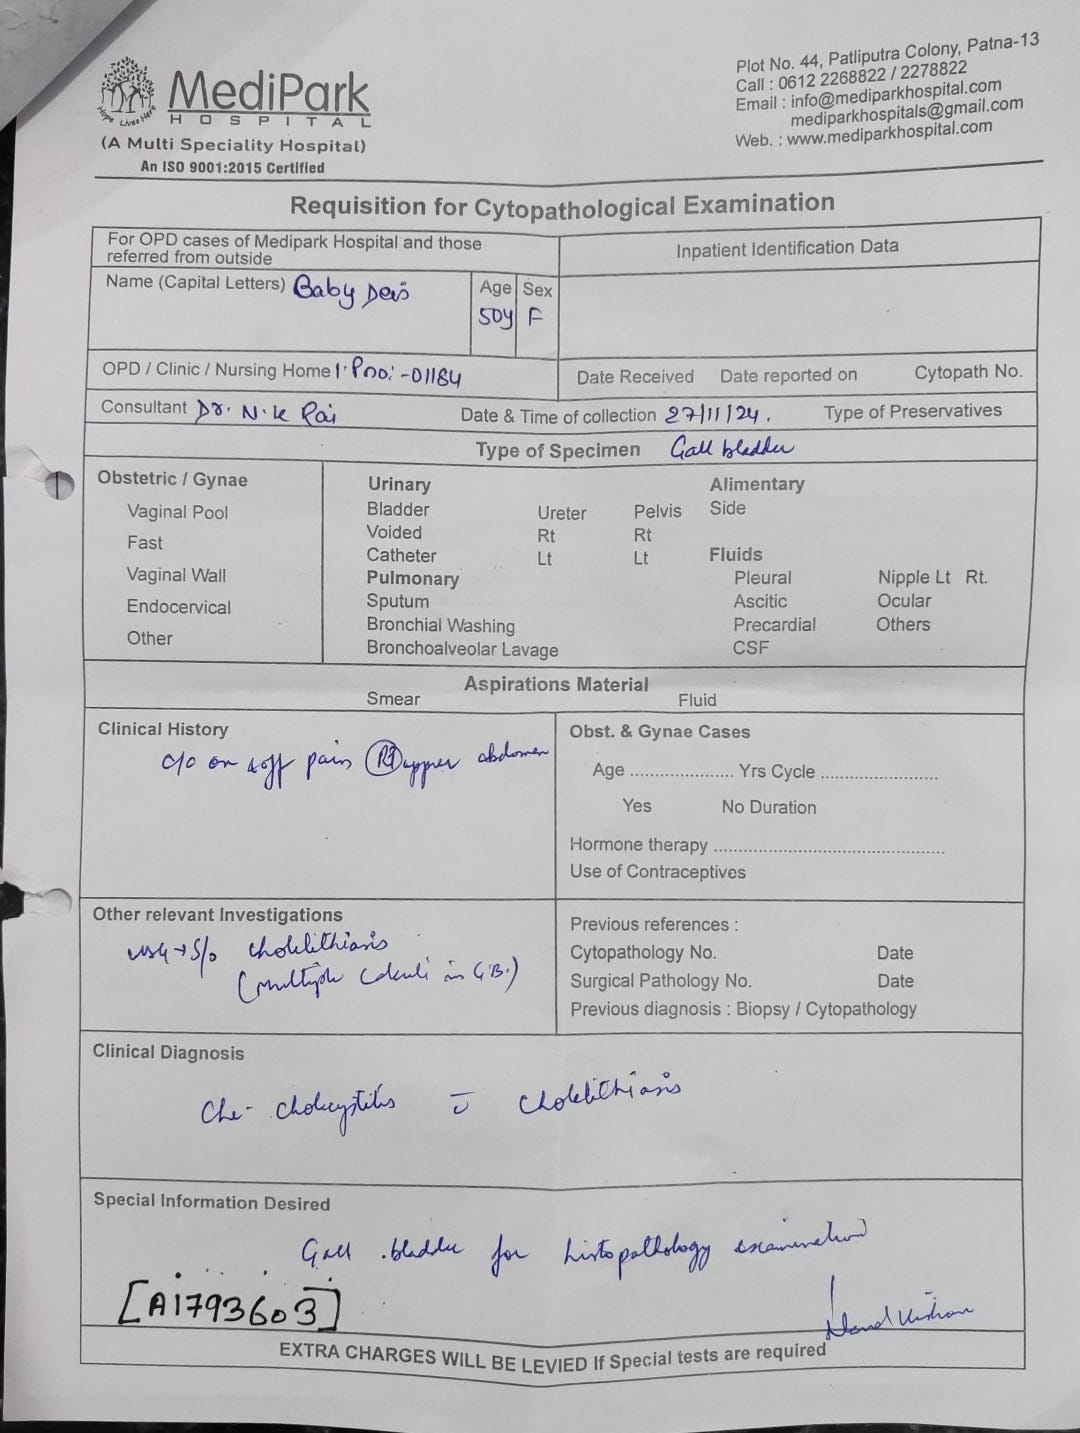 MediPark
HOSPITAL
Hope Lives Here
(A Multi Speciality Hospital)
An ISO 9001:2015 Certified
Plot No. 44, Patliputra Colony, Patna-13
Call : 0612 2268822 / 2278822
Email : info@mediparkhospital.com
mediparkhospitals@gmail.com
Web. : www.mediparkhospital.com
Requisition for Cytopathological Examination
For OPD cases of Medipark Hospital and those
referred from outside
Inpatient Identification Data
Name (Capital Letters) Baby Devi
Age Sex
50y F
OPD / Clinic / Nursing Home -01184
Date Received Date reported on Cytopath No.
Consultant Dr. N.K Rai
Date & Time of collection 27/11/24. Type of Preservatives
Type of Specimen Gall bladder
Obstetric / Gynae
Vaginal Pool
Fast
Vaginal Wall
Endocervical
Other
Urinary
Bladder Ureter Pelvis
Voided Rt Rt
Catheter Lt Lt
Pulmonary
Sputum
Bronchial Washing
Bronchoalveolar Lavage
Alimentary
Side
Fluids
Pleural Nipple Lt Rt.
Ascitic Ocular
Precardial Others
CSF
Aspirations Material
Smear Fluid
Clinical History
c/o on & off pain Rt upper abdomen
Obst. & Gynae Cases
Age .................... Yrs Cycle ......................
Yes No Duration
Hormone therapy ...........................................
Use of Contraceptives
Other relevant Investigations
USG → S/o cholelithiasis
(multiple calculi in G.B.)
Previous references :
Cytopathology No. Date
Surgical Pathology No. Date
Previous diagnosis : Biopsy / Cytopathology
Clinical Diagnosis
Chr- cholecystitis c̄ cholelithiasis
Special Information Desired
Gall bladder for histopathology examination
[A1793603]
EXTRA CHARGES WILL BE LEVIED If Special tests are required